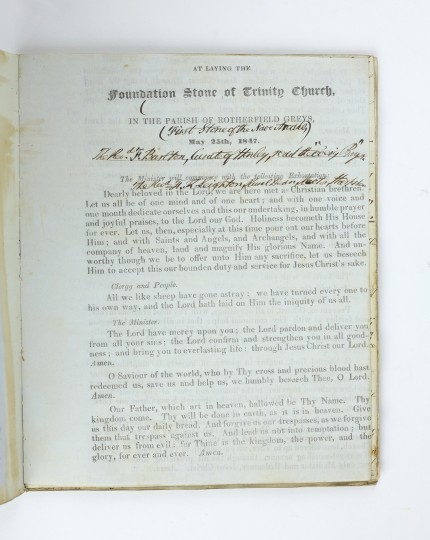 AT LAYING THE
Foundation Stone of Trinity Church,
IN THE PARISH OF ROTHERFIELD GREYS,
(First Stone of the New Aisle)
May 25th, 1847.
The Revd. F. Burlton, Curate of Henley, read the
The Minister will commence with the following Exhortation:
The Revd.
Dearly beloved in the Lord, we are here met as Christian brethren.
Let us all be of one mind and of one heart; and with one voice and
one mouth dedicate ourselves and this our undertaking, in humble prayer
and joyful praises, to the Lord our God. Holiness becometh His House
for ever. Let us, then, especially at this time pour out our hearts before
Him; and with Saints and Angels, and Archangels, and with all the
company of heaven, laud and magnify His glorious Name. And un-
worthy though we be to offer unto Him any sacrifice, let us beseech
Him to accept this our bounden duty and service for Jesus Christ's sake.
Clergy and People.
All we like sheep have gone astray: we have turned every one to
his own way, and the Lord hath laid on Him the iniquity of us all.
The Minister.
The Lord have mercy upon you; the Lord pardon and deliver you
from all your sins; the Lord confirm and strengthen you in all good-
ness; and bring you to everlasting life: through Jesus Christ our Lord.
Amen.
O Saviour of the world, who by Thy cross and precious blood hast
redeemed us, save us and help us, we humbly beseech Thee, O Lord.
Amen.
Our Father, which art in heaven, hallowed be Thy Name. Thy
kingdom come. Thy will be done in earth, as it is in heaven. Give
us this day our daily bread. And forgive us our trespasses, as we forgive
them that trespass against us. And lead us not into temptation; but
deliver us from evil: for Thine is the kingdom, the power, and the
glory, for ever and ever. Amen.